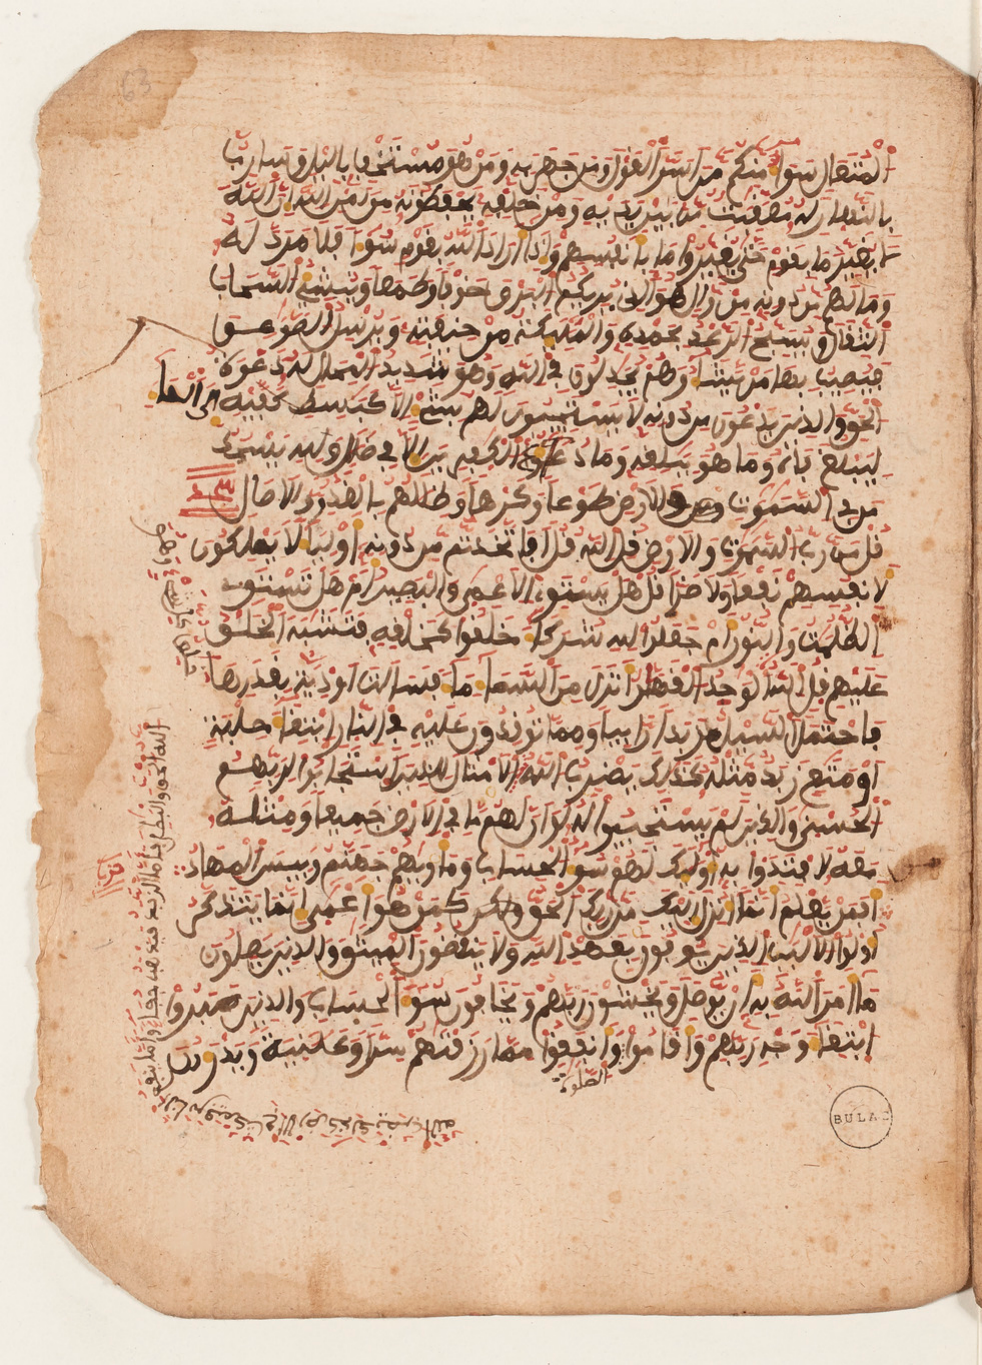 المتعال سواء منكم من اسر القول ومن جهر به ومن هو مستخف باليل وسارب
بالنهار له معقبت من بين يديه ومن خلفه يحفظونه من امر الله ان الله
لا يغير ما بقوم حتى يغيروا ما بانفسهم واذا اراد الله بقوم سوءا فلا مرد له
وما لهم من دونه من وال هو الذى يريكم البرق خوفا وطمعا وينشئ السحاب
الثقال ويسبح الرعد بحمده والمليكة من خيفته ويرسل الصوعق
فيصيب بها من يشاء وهم يجدلون في الله وهو شديد المحال له دعوة
الحق والذين يدعون من دونه لا يستجيبون لهم بشئ الا كبسط كفيه الى الماء
ليبلغ فاه وما هو ببلغه وما دعاء الكفرين الا في ضلل ولله يسجد
من في السموت والارض طوعا وكرها وظللهم بالغدو والاصال
قل من رب السموت والارض قل الله قل افاتخذتم من دونه اولياء لا يملكون
لانفسهم نفعا ولا ضرا قل هل يستوى الاعمى والبصير ام هل تستوى
الظلمت والنور ام جعلوا لله شركاء خلقوا كخلقه فتشبه الخلق
عليهم قل الله الوحد القهر انزل من السماء ماء فسالت اودية بقدرها
فاحتمل السيل زبدا رابيا ومما توقدون عليه في النار ابتغاء حلية
او متع زبد مثله كذلك يضرب الله الامثال للذين استجابوا لربهم
الحسنى والذين لم يستجيبوا له لو ان لهم ما في الارض جميعا ومثله
معه لافتدوا به اوليك لهم سوء الحساب وماويهم جهنم وبيس المهاد
افمن يعلم انما انزل اليك من ربك الحق كمن هو اعمى انما يتذكر
اولوا الالبب الذين يوفون بعهد الله ولا ينقضون الميثق والذين يصلون
ما امر الله به ان يوصل ويخشون ربهم ويخافون سوء الحساب والذين صبروا
ابتغاء وجه ربهم واقاموا وانفقوا مما رزقنهم سرا وعلنية ويدرءون
الصلوة
الله الحق والبطل فاما الزبد فيذهب جفاء واما ما ينفع
الناس فيمكث في الارض كذلك يضرب الله
63
BULAC